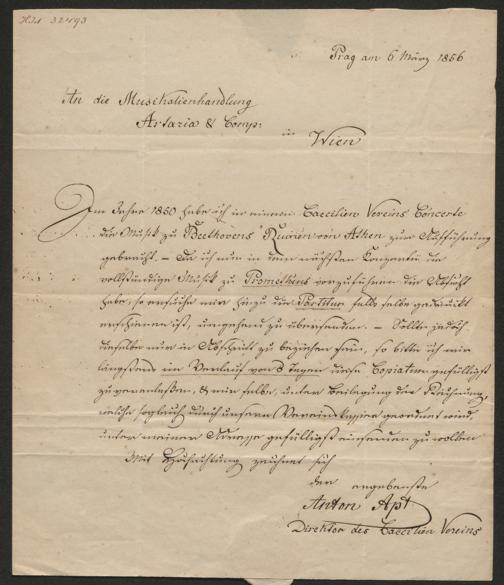 HIN 32493
Prag am 6 März 1856
An die Musikalienhandlung
Artaria & Comp:
in
Wien
Im Jahre 1850 habe ich in einem Caecilien Vereins Concerte
die Musik zu Beethovens "Ruinen von Athen" zur Aufführung
gebracht. – Da ich nun in dem nächsten Konzerte die
vollständige Musik zu Prometheus vorzuführen die Absicht
habe, so ersuche mir hiezu die Partitur falls selbe gedruckt
erschienen ist, umgehend zu übersenden. – Sollte jedoch
dieselbe nur in Abschrift zu beziehen sein, so bitte ich mir
längstens im Verlauf von 8 Tagen diese Copiatur gefälligst
zu veranlaßen, & mir selbe, unter Beilegung der Rechnung,
welche sogleich durch unsern Vereinskassier geordnet wird,
unter meiner Adresse gefälligst einsenden zu wollen
Mit Hochachtung zeichnet sich
der ergebenste
Anton Apt
Direktor des Caecilien Vereins